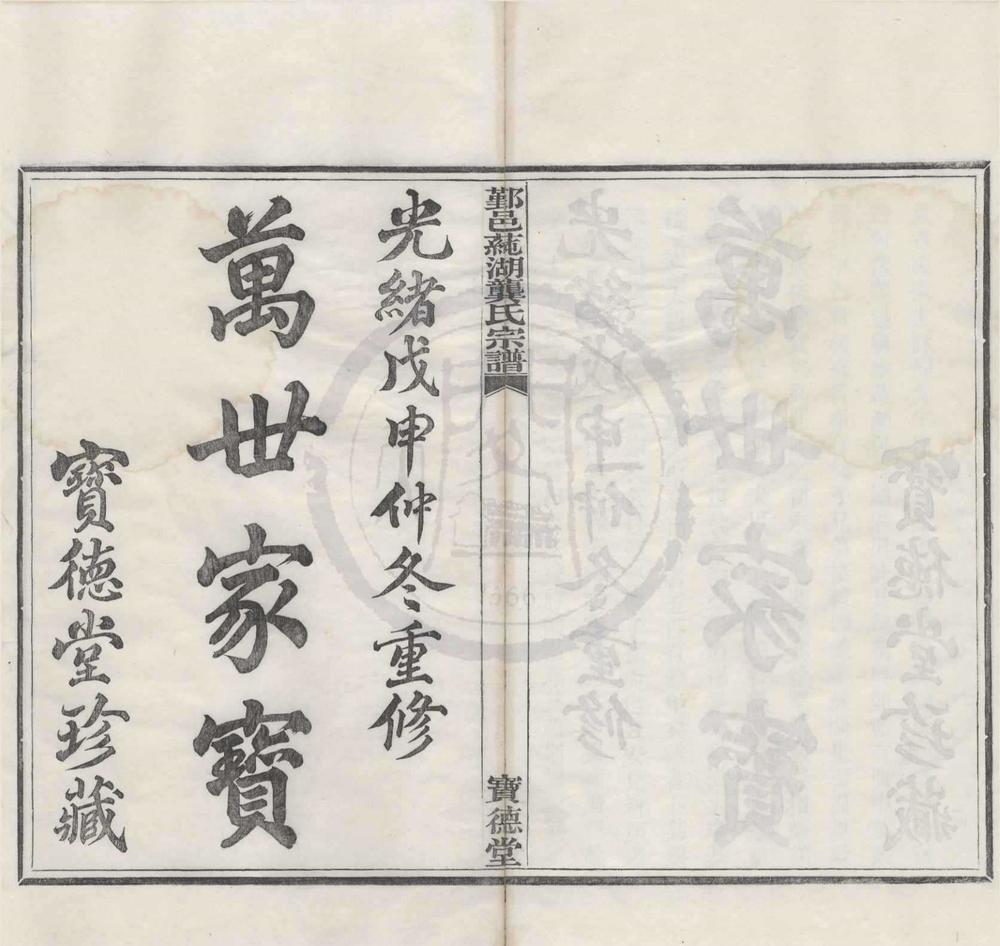 光緒戊申仲冬重修
萬世家寶
寶德堂珍藏
鄞邑蒓湖龔氏宗譜
寶德堂